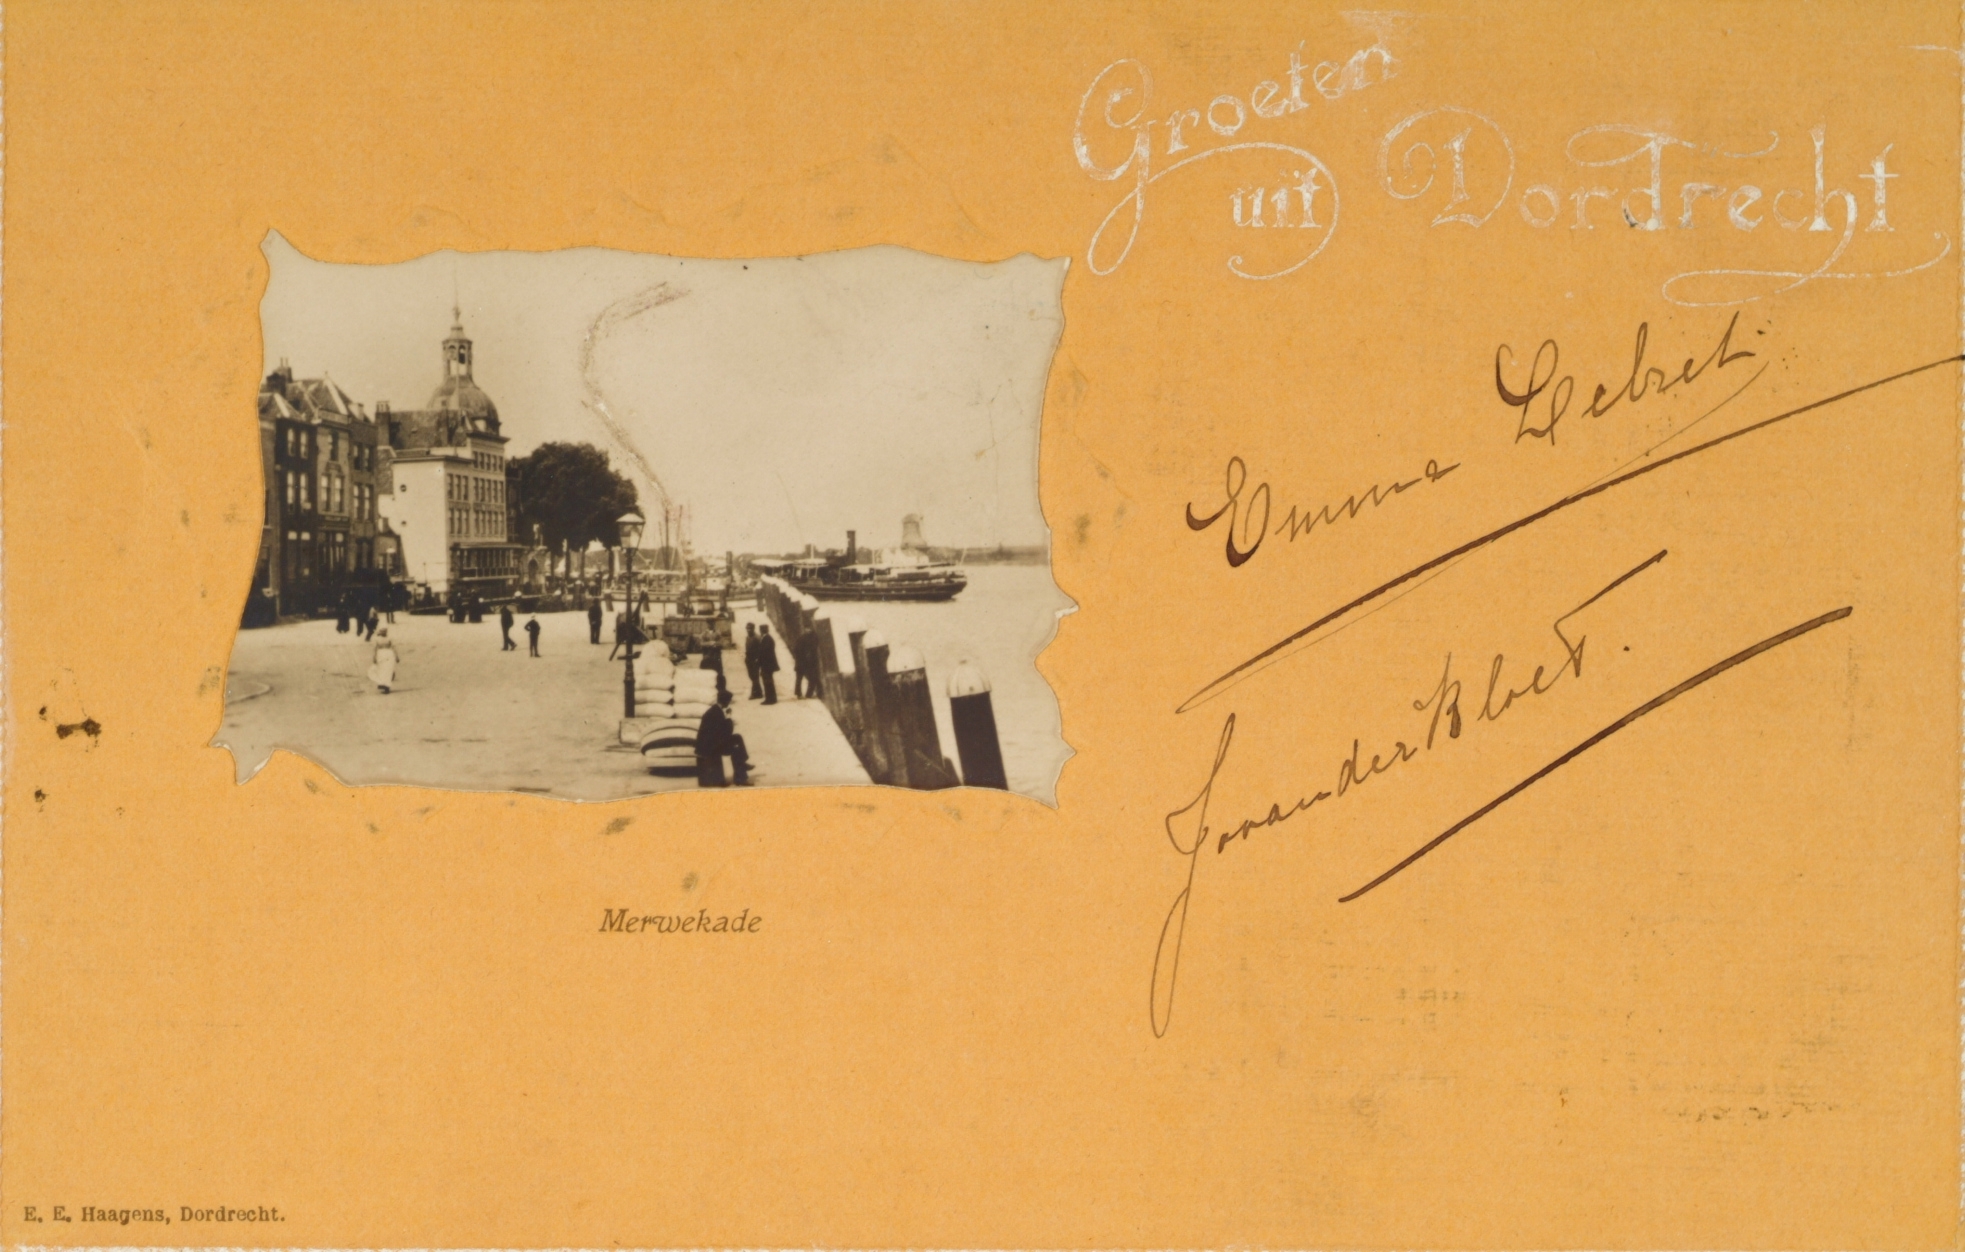 Groeten
uit Dordrecht
Emma Lebret
J van der Kloet.
Merwekade
E. E. Haagens, Dordrecht.